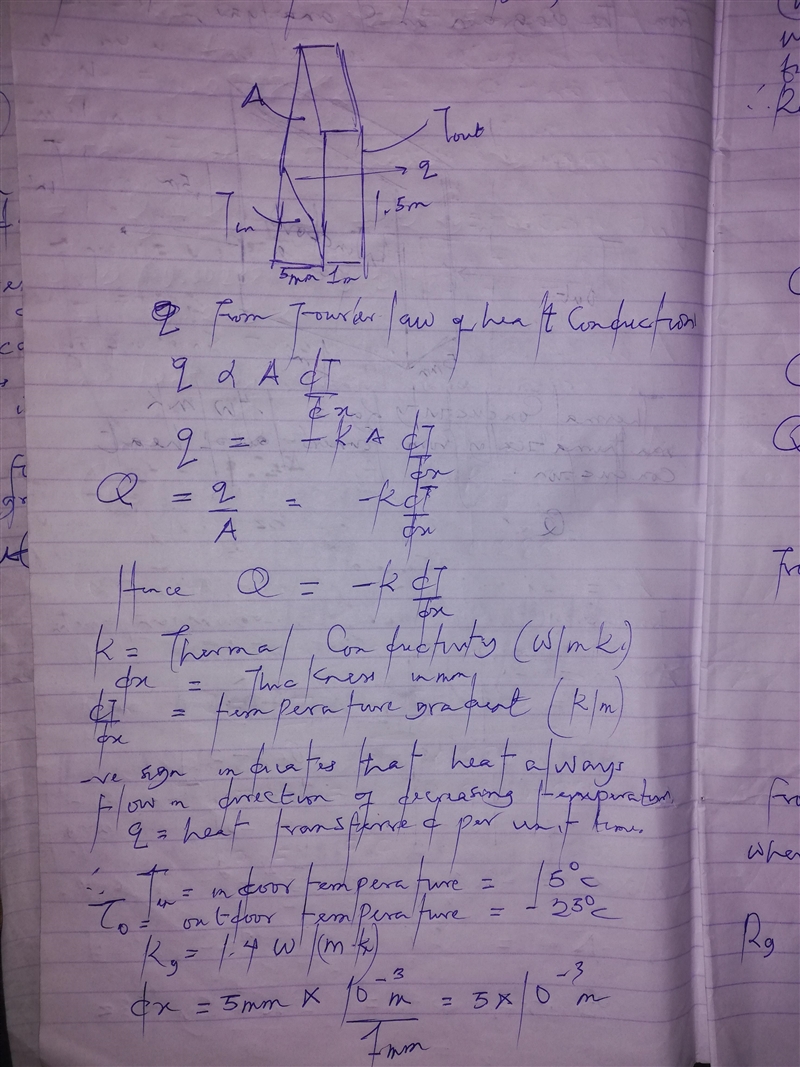 A
Tout
q
Tin
1.5m
5mm 1m
q From Fourier law of heat Conduction
q α A dT/dx
q = -KA dT/dx
Q = q/A = -k dT/dx
Hence Q = -k dT/dx
K = Thermal Conductivity (W/mk)
dx = Thickness in mm
dT/dx = temperature gradient (k/m)
-ve sign indicates that heat always
flow in direction of decreasing temperature.
q = heat transferred per unit time.
∴ Tin = indoor temperature = 15°c
To = outdoor temperature = -23°c
Kg = 1.4 W/(mk)
dx = 5mm × 10⁻³m/1mm = 5×10⁻³ m
wher
Rg